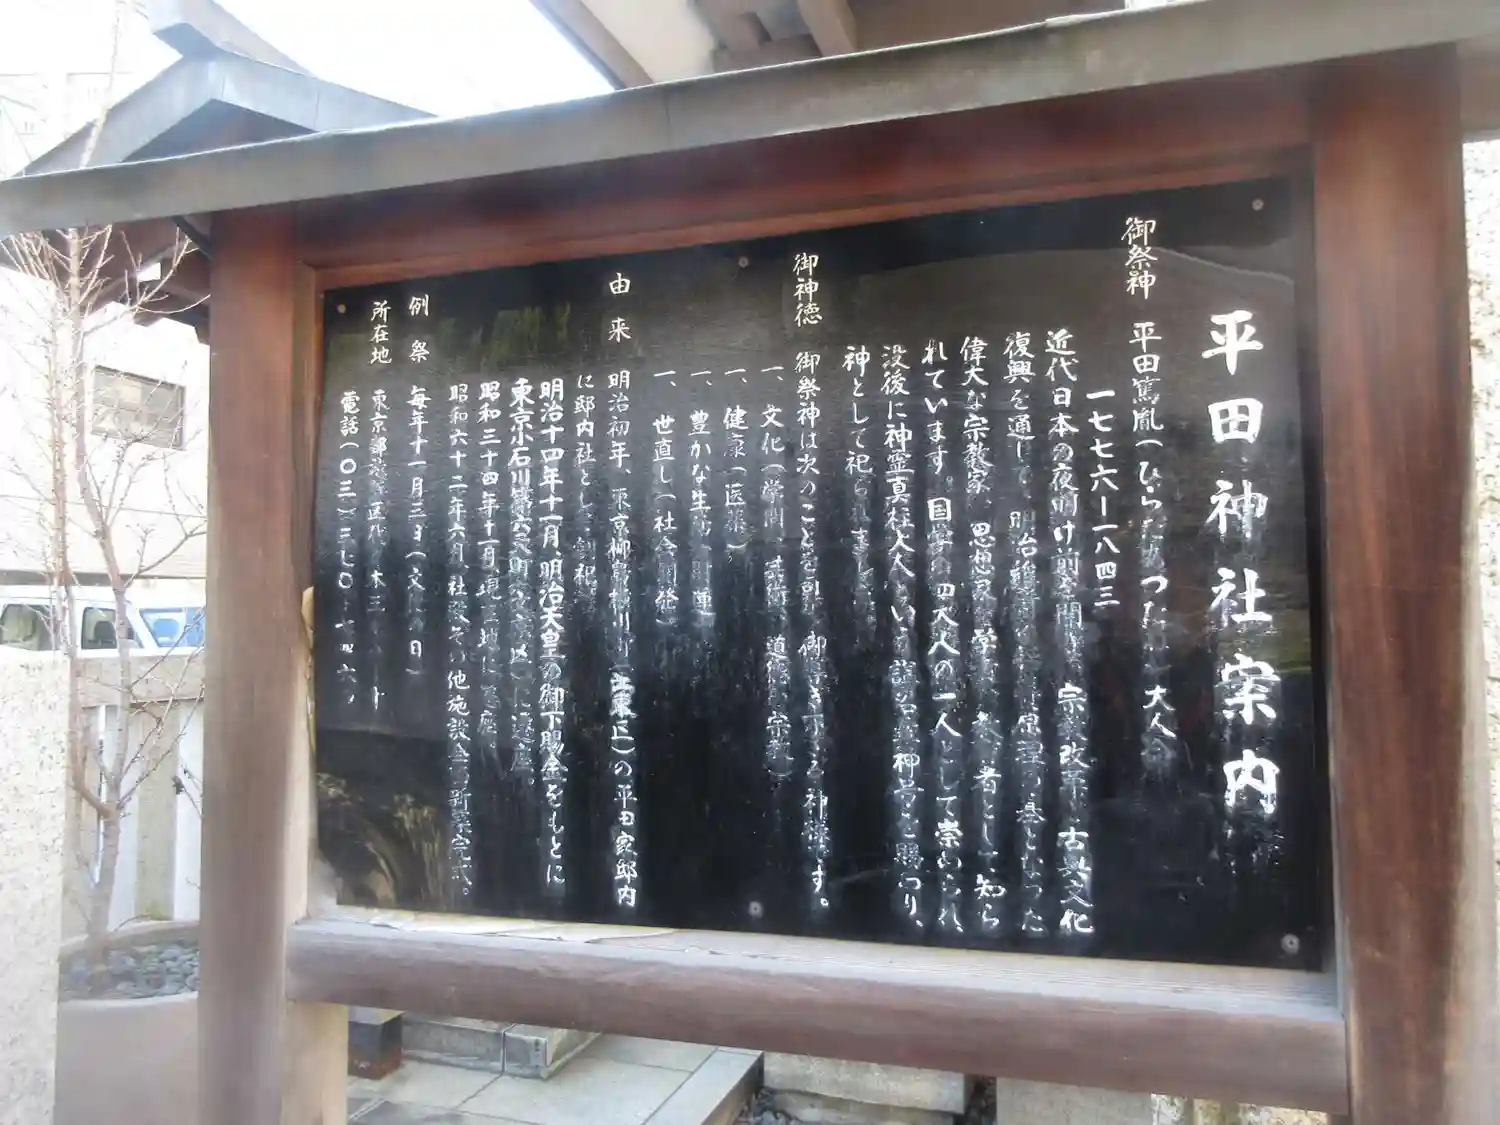 平田神社案内
御祭神 平田篤胤(ひらたあつたね)大人命
一七七六ー一八四三
近代日本の夜明け前を開き 宗教改革 古典文化
復興を通して、明治維新の 原理の基となった
偉大な宗教家、思想家、学者、教育者として知ら
れています。国学の四大人の一人として崇められ、
没後に神霊真柱大人という諡名 神号を賜わり、
神として祀られました。
御神徳 御祭神は次のことを司り 御導き下さる神様です。
一、文化(学問 芸術 道徳 宗教)
一、健康(医薬)
一、豊かな生活(開運)
一、世直し(社会開発)
由来 明治初年、東京柳島横川町(江東区)の平田家邸内
に邸内社として創祀
明治十四年十一月、明治大皇の御下賜金をもとに
東京小石川第六天町(文京区)に遷座
昭和三十四年十一月現在地に遷座
昭和六十二年六月、社殿その他施設全面新築完成。
例祭 毎年十一月三日(文化の日)
所在地 東京都渋谷区代々木三
電話(〇三)三七〇